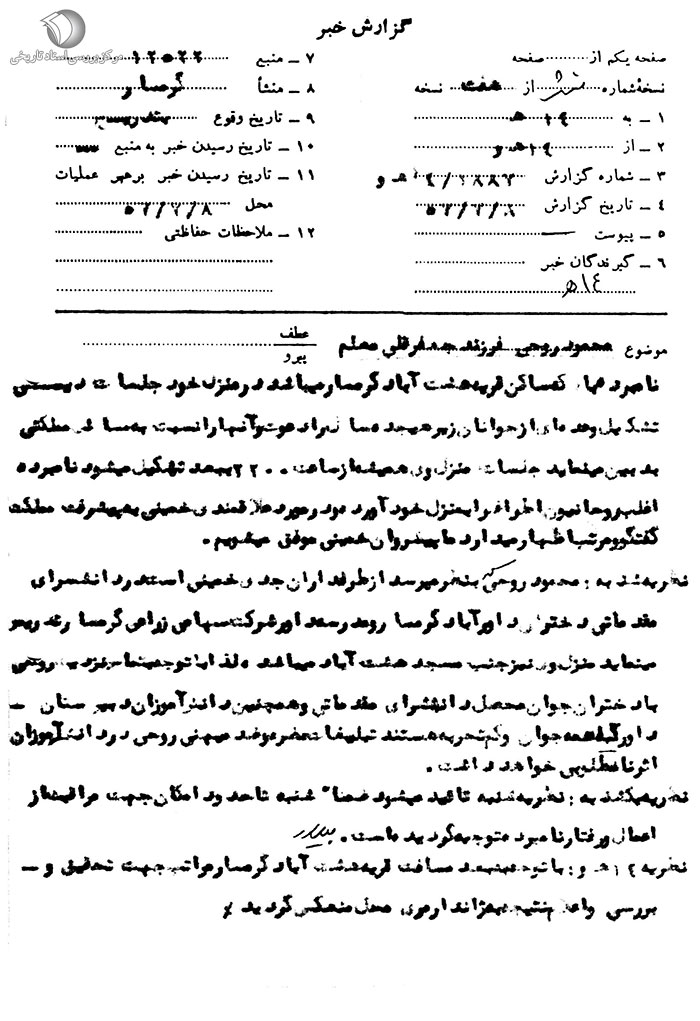 مرکز بررسی اسناد تاریخی
گزارش خبر
صفحه یکم از صفحه
نسخهٔ شماره شش از هفت نسخه
۱ ـ به ۱۹ هـ
۲ ـ از ۱۹ هـ و
۳ ـ شماره گزارش
۴ ـ تاریخ گزارش ۵۲/۲/۸
۵ ـ پیوست ــ
۶ ـ گیرندگان خبر
۱۴ هـ
۷ ـ منبع ۱۲۵۲۲
۸ ـ منشأ گرمسار
۹ ـ تاریخ وقوع بتدریج
۱۰ ـ تاریخ رسیدن خبر به منبع
۱۱ ـ تاریخ رسیدن خبر برهبر عملیات
محل ۵۲/۲/۸
۱۲ ـ ملاحظات حفاظتی
موضوع محمود روحی فرزند جعفرقلی معلم
عطف
پیرو
نامبرده بالا که ساکن قریه هشت آباد گرمسار میباشد در منزل خود جلسات
تشکیل وعده ای از جوانان را دعوت و آنها را نسبت به مملکتی
بدبین مینماید جلسات منزل وی همیشه از ساعت ۲۲۰۰ ببعد تشکیل میشود نامبرده
اغلب روحانیون اطراف را بمنزل خود آورده و در مورد علاقمندی خمینی به پیشرفت مملکت
گفتگو و مرتبا اظهار میدارد ما پیروان خمینی موفق میشویم .
نظریه شنبه : محمود روحی که بنظر میرسد از طرفداران جدی خمینی است در دانشسرای
مقدماتی دختران داورآباد گرمسار و در شرکت سهامی زراعی گرمسار تدریس
مینماید منزل وی نیز جنب مسجد هشت آباد میباشد و لذا با توجه روحی
با دختران جوان محصل دانشسرای مقدماتی و همچنین دانش آموزان دبیرستان ـ
داورآباد که همه جوان و کم تجربه هستند تبلیغات مضر و ضد میهنی روحی در دانش آموزان
اثر نامطلوبی خواهد داشت .
نظریه یکشنبه : نظریه شنبه تائید میشود ضمنا" شنبه تا حدود امکان جهت مراقبت از
اعمال و رفتار نامبرده توجیه گردیده است .
نظریه ۱۲ هـ و : با توجه به بعد مسافت قریه هشت آباد گرمسار مراتب جهت تحقیق و ـ
بررسی و اعلام نتیجه به ژاندارمری محل منعکس گردید